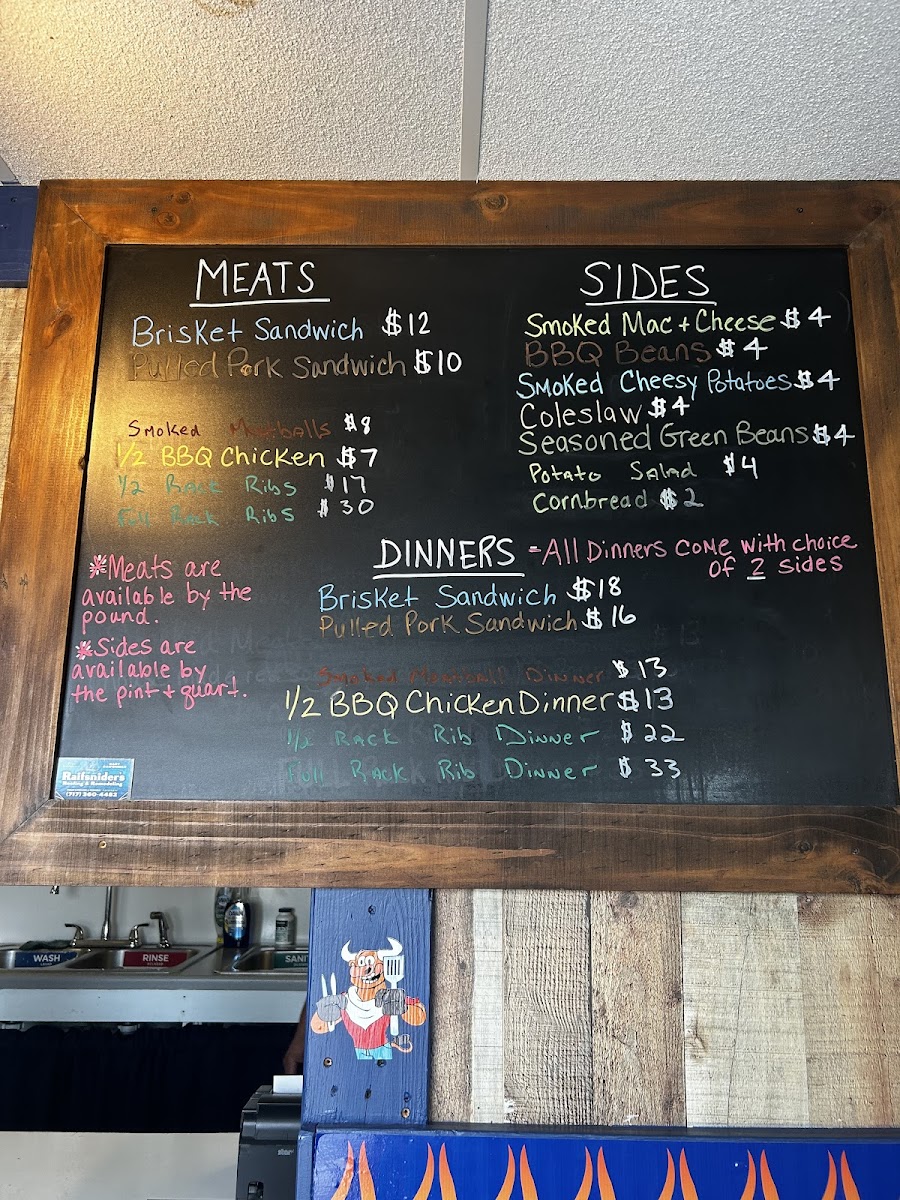 MEATS
Brisket Sandwich $12
Pulled Pork Sandwich $10
Smoked Meatballs $8
1/2 BBQ Chicken $7
1/2 Rack Ribs $17
Full Rack Ribs $30
*Meats are
available by the
pound.
*Sides are
available by
the pint + quart.
SIDES
Smoked Mac + Cheese $4
BBQ Beans $4
Smoked Cheesy Potatoes $4
Coleslaw $4
Seasoned Green Beans $4
Potato Salad $4
Cornbread $2
DINNERS - All Dinners come with choice
of 2 sides
Brisket Sandwich $18
Pulled Pork Sandwich $16
Smoked Meatball Dinner $13
1/2 BBQ Chicken Dinner $13
1/2 Rack Rib Dinner $22
Full Rack Rib Dinner $33
Raifsnider's
Roofing & Remodeling
(717) 360-4483
WASH
RINSE
SANI